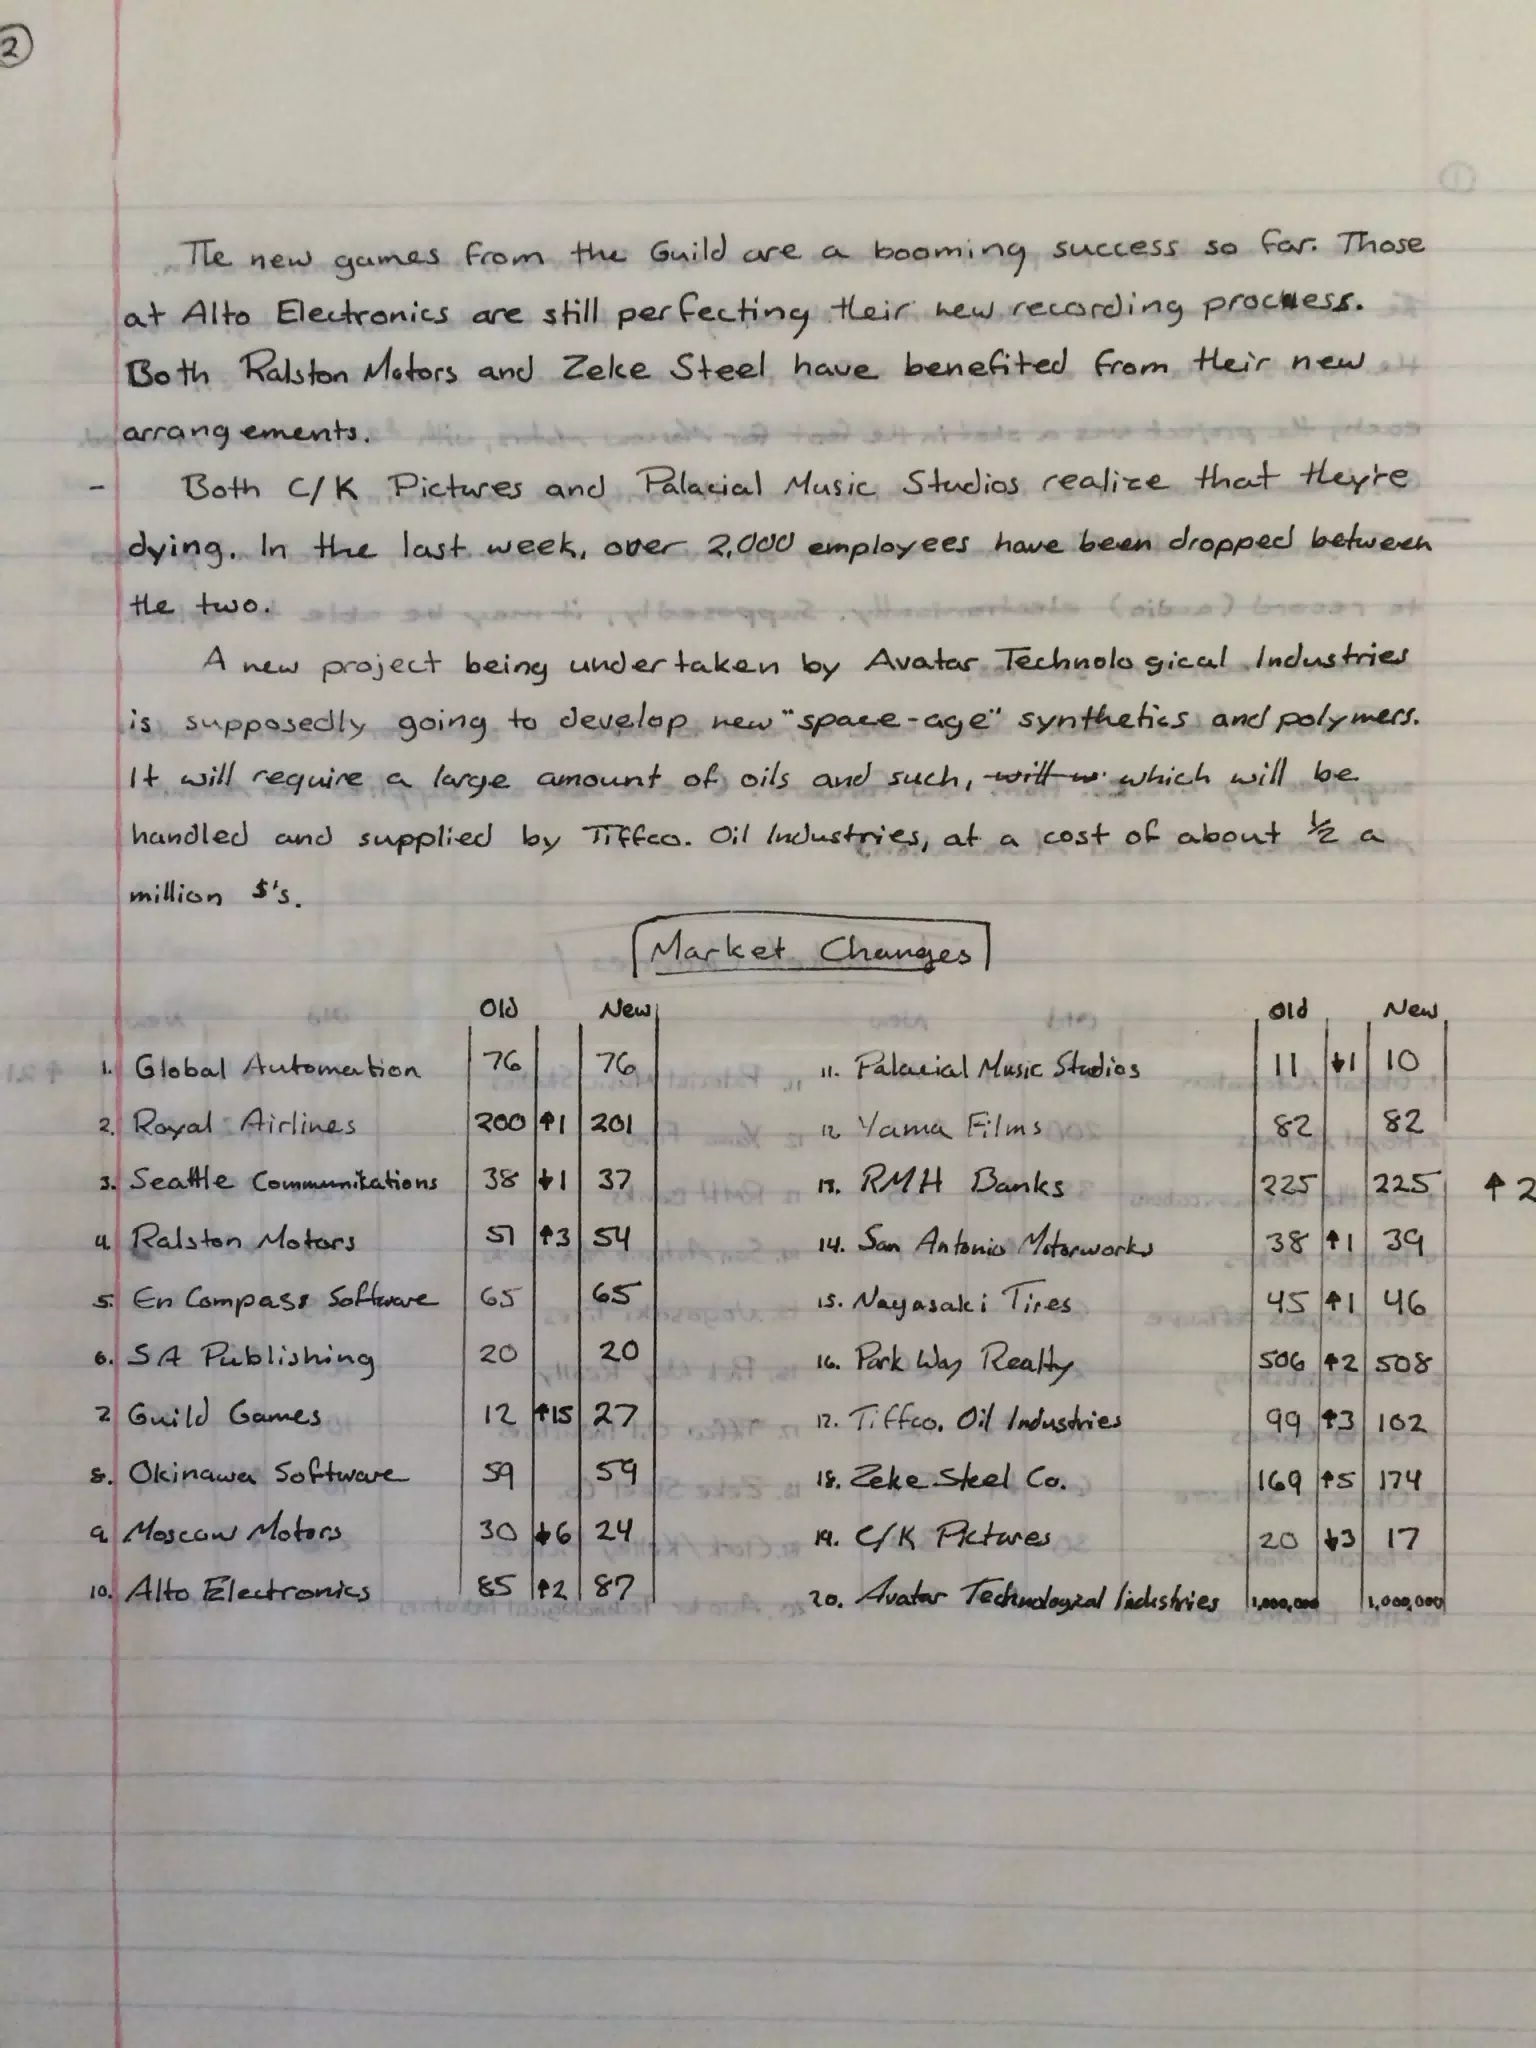 2
The new games from the Guild are a booming success so far. Those
at Alto Electronics are still perfecting their new recording process.
Both Ralston Motors and Zeke Steel have benefited from their new
arrangements.
- Both C/K Pictures and Palacial Music Studios realize that they're
dying. In the last week, over 2,000 employees have been dropped between
the two.
A new project being undertaken by Avatar Technological Industries
is supposedly going to develop new "space-age" synthetics and polymers.
It will require a large amount of oils and such, which will be
handled and supplied by Tiffco. Oil Industries, at a cost of about ½ a
million $'s.
Market Changes
Old New Old New
1. Global Automation 76 76 11. Palacial Music Studios 11 ↓1 10
2. Royal Airlines 200 ↑1 201 12. Yama Films 82 82
3. Seattle Communikations 38 ↓1 37 13. RMH Banks 225 225 ↑2
4. Ralston Motors 51 ↑3 54 14. San Antonio Motorworks 38 ↑1 39
5. En Compass Software 65 65 15. Nagasaki Tires 45 ↑1 46
6. SA Publishing 20 20 16. Park Way Realty 506 ↑2 508
7. Guild Games 12 ↑15 27 17. Tiffco. Oil Industries 99 ↑3 102
8. Okinawa Software 59 59 18. Zeke Steel Co. 169 ↑5 174
9. Moscow Motors 30 ↓6 24 19. C/K Pictures 20 ↓3 17
10. Alto Electronics 85 ↑2 87 20. Avatar Technological Industries 1,000,000 1,000,000